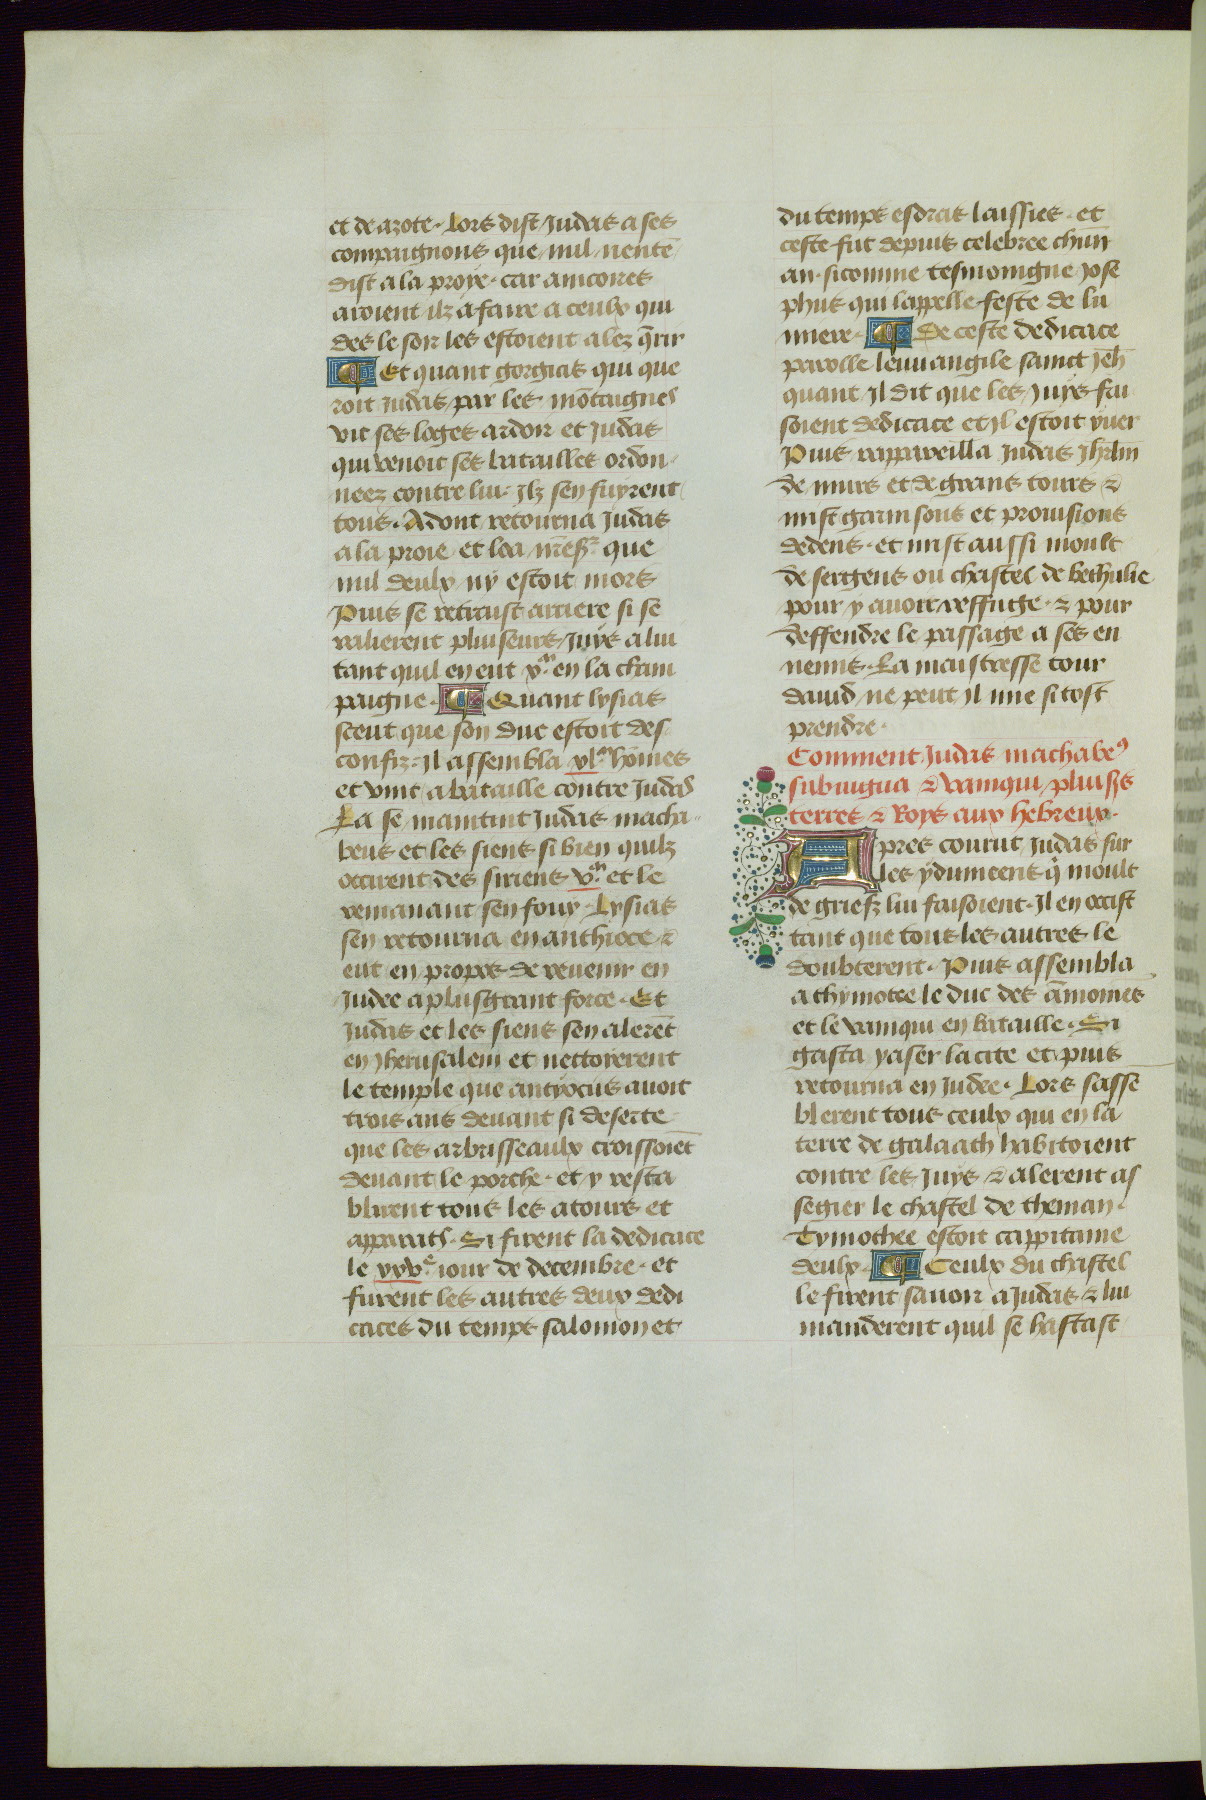 et de azote. Lors dist Judas a ses
compaignons que nul nentē
dist a la proye. car aincores
avoient ilz a faire a ceulx qui
dēs le soir les estoient alez q̄rir
¶ Et quant gorgias qui que
roit Judas par les mōtaignes
vit ses loges ardoir et Judas
qui venoit ses batailles ordon
neez contre lui. Ilz sen fuyrent
tous. Adont retourna Judas
a la proie et loa nr̄es^r que
nul deulx ny estoit mors
Puis se retraist arriere si se
ralierent pluiseurs Juys a lui
tant quil en eut x.^m en la cham
paigne. ¶ Quant lysias
sceut que son duc estoit des
confiz. il assembla xl^m hōmes
et vint a bataille contre Judas
La se maintint Judas macha
beus et les siens si bien quilz
occirent des siriens v.^m et le
remanant sen fouy. Lysias
sen retourna en anthioce. &
eut en propos de revenir en
Judee a plus grant force. Et
Judas et les siens sen alerēt
en Jherusalem et nettoierent
le temple que antyocus avoit
trois ans devant si deserte
que les arbrisseaulx croissoiēt
devant le porche. et y resta
blirent tous les atours et
apparats. Si firent la dedicace
le xxv^e iour de decembre. et
furent les autres deux dedi
caces du temps salomon et
du temps esdras laissies. et
ceste fut depuis celebree chūn
an. sicomme tesmoingne Jose
phus qui lappelle feste de lu
miere. ¶ De ceste dedicace
parolle leuuangile sainct Jeh̄
quant Il dit que les Juys fai
soient dedicace et Il estoit yuer
Puis rappareilla Judas Jhrlm̄
de murs et de grans tours &
mist garnisons et provisions
dedens. et mist aussi moult
de sergens ou chastel de bethulie
pour y avoir reffuge. & pour
deffendre le passage a ses en
nemis. La maistresse tour
david ne peut Il mie si tost
prendre.
Comment Judas machabe⁹
subiugua & vainqui pluiss^s
terres & Roys aux hebreux.
Apres courut Judas sur
les ydumeens q̇ moult
de griefz lui faisoient. Il en occist
tant que tous les autres le
doubterent. Puis assembla
a thymotee le duc des āmonites
et le vainqui en bataille. Si
gasta yaser la cite et puis
retourna en Judee. Lors sasse
blerent tous ceulx qui en la
terre de galaath habitoient
contre les Juys & alerent as
segier le chastel de theman.
Tymothee estoit cappitaine
deulx. ¶ Ceulx du chastel
le firent savoir a Judas. & lui
manderent quil se hastast